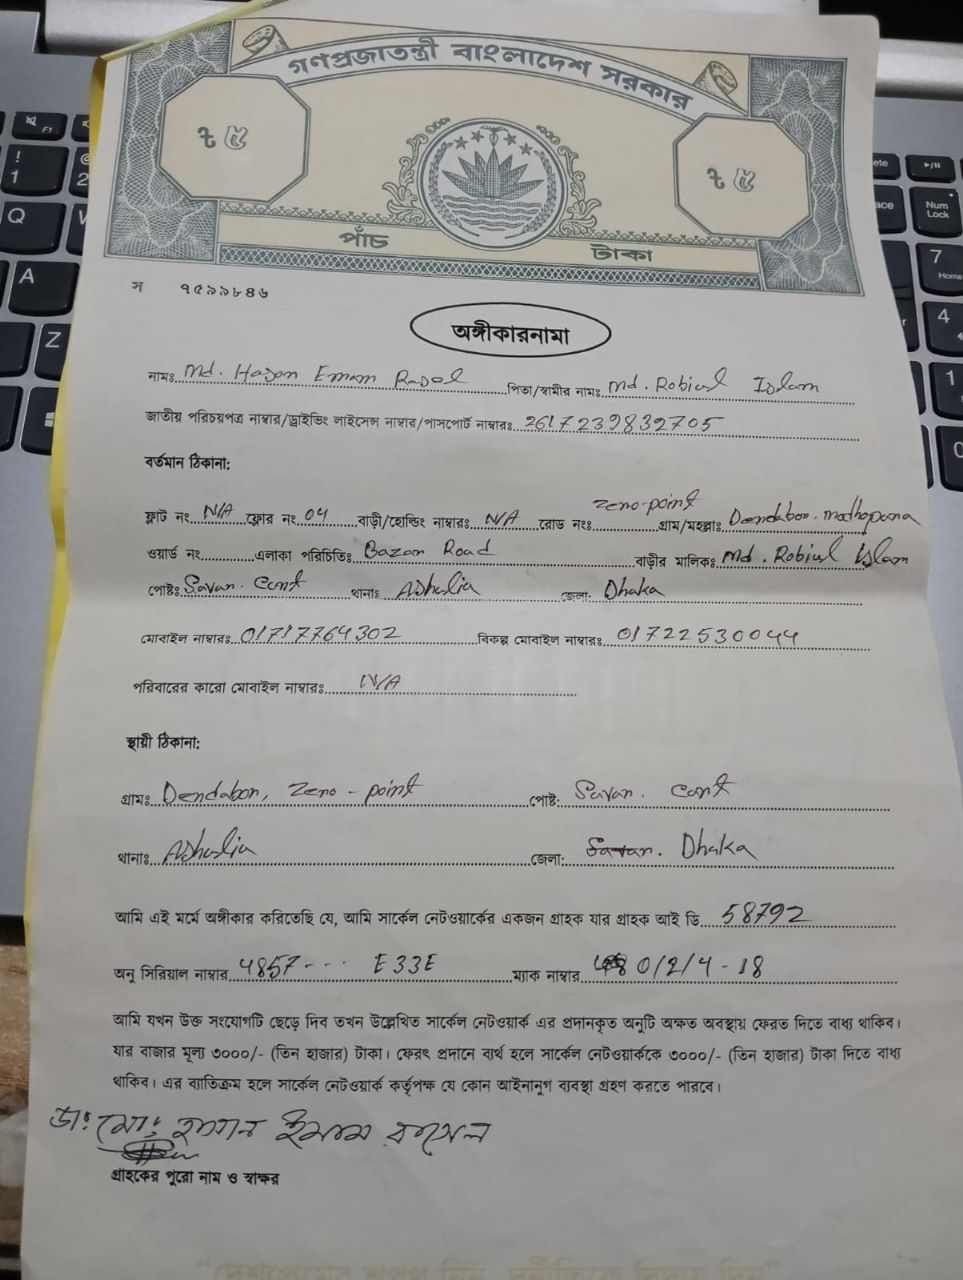 গণপ্রজাতন্ত্রী বাংলাদেশ সরকার
৳ ৫ ৳ ৫
পাঁচ টাকা
স ৭৫৯৯৮৪৬
অঙ্গীকারনামা
নামঃ Md. Hasan Emam Rasel পিতা/স্বামীর নামঃ Md. Robiul Islam
জাতীয় পরিচয়পত্র নাম্বার/ড্রাইভিং লাইসেন্স নাম্বার/পাসপোর্ট নাম্বারঃ 2617239832705
বর্তমান ঠিকানা:
ফ্লাট নং N/A ফ্লোর নং 04 বাড়ী/হোল্ডিং নাম্বারঃ N/A রোড নংঃ zero-point গ্রাম/মহল্লাঃ Dendabor. madhopara
ওয়ার্ড নং এলাকা পরিচিতিঃ Bazar Road বাড়ীর মালিকঃ Md. Robiul Islam
পোষ্টঃ Savar. Cant থানাঃ Ashulia জেলা: Dhaka
মোবাইল নাম্বারঃ 01717764302 বিকল্প মোবাইল নাম্বারঃ 01722530044
পরিবারের কারো মোবাইল নাম্বারঃ N/A
স্থায়ী ঠিকানা:
গ্রামঃ Dendabor, Zero-point পোষ্ট: Savar. Cant
থানাঃ Ashulia জেলা: Dhaka
আমি এই মর্মে অঙ্গীকার করিতেছি যে, আমি সার্কেল নেটওয়ার্কের একজন গ্রাহক যার গ্রাহক আই ডি 58792
অনু সিরিয়াল নাম্বার 4857--- E33E ম্যাক নাম্বার 0/2/4-18
আমি যখন উক্ত সংযোগটি ছেড়ে দিব তখন উল্লেখিত সার্কেল নেটওয়ার্ক এর প্রদানকৃত অনুটি অক্ষত অবস্থায় ফেরত দিতে বাধ্য থাকিব।
যার বাজার মূল্য ৩০০০/- (তিন হাজার) টাকা। ফেরৎ প্রদানে ব্যর্থ হলে সার্কেল নেটওয়ার্ককে ৩০০০/- (তিন হাজার) টাকা দিতে বাধ্য
থাকিব। এর ব্যতিক্রম হলে সার্কেল নেটওয়ার্ক কর্তৃপক্ষ যে কোন আইনানুগ ব্যবস্থা গ্রহণ করতে পারবে।
ডা: মো: হাসান ইমাম রাসেল
গ্রাহকের পুরো নাম ও স্বাক্ষর